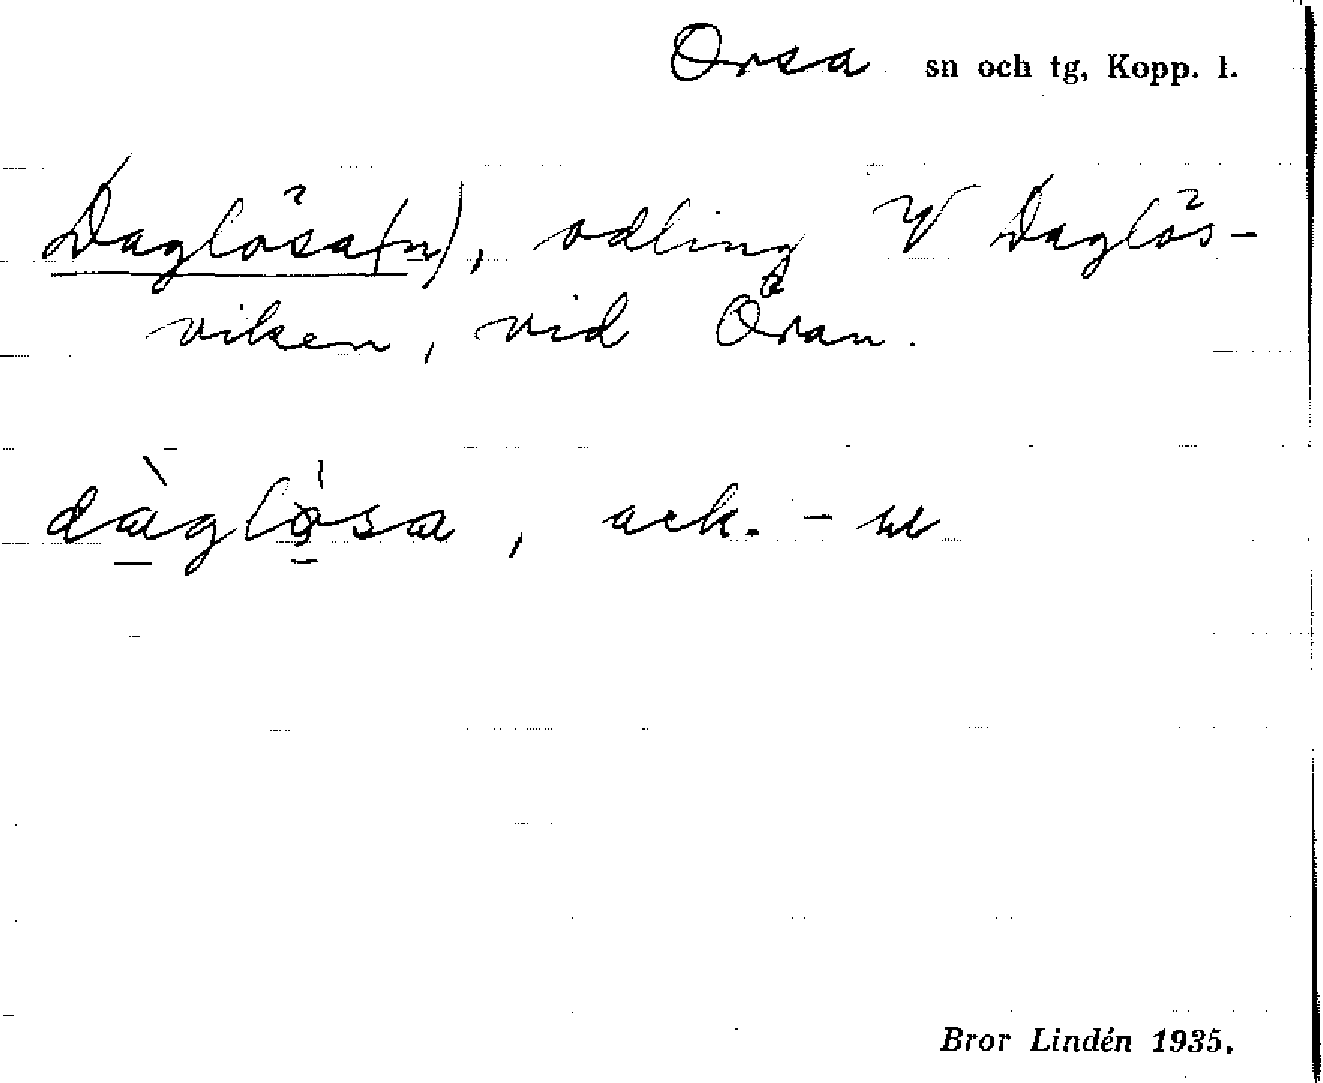 Orsa sn och tg, Kopp. l.
Daglösa(n), odling V Daglös-
viken, vid Öran.
dàglösa, ack. -u
Bror Lindén 1935.